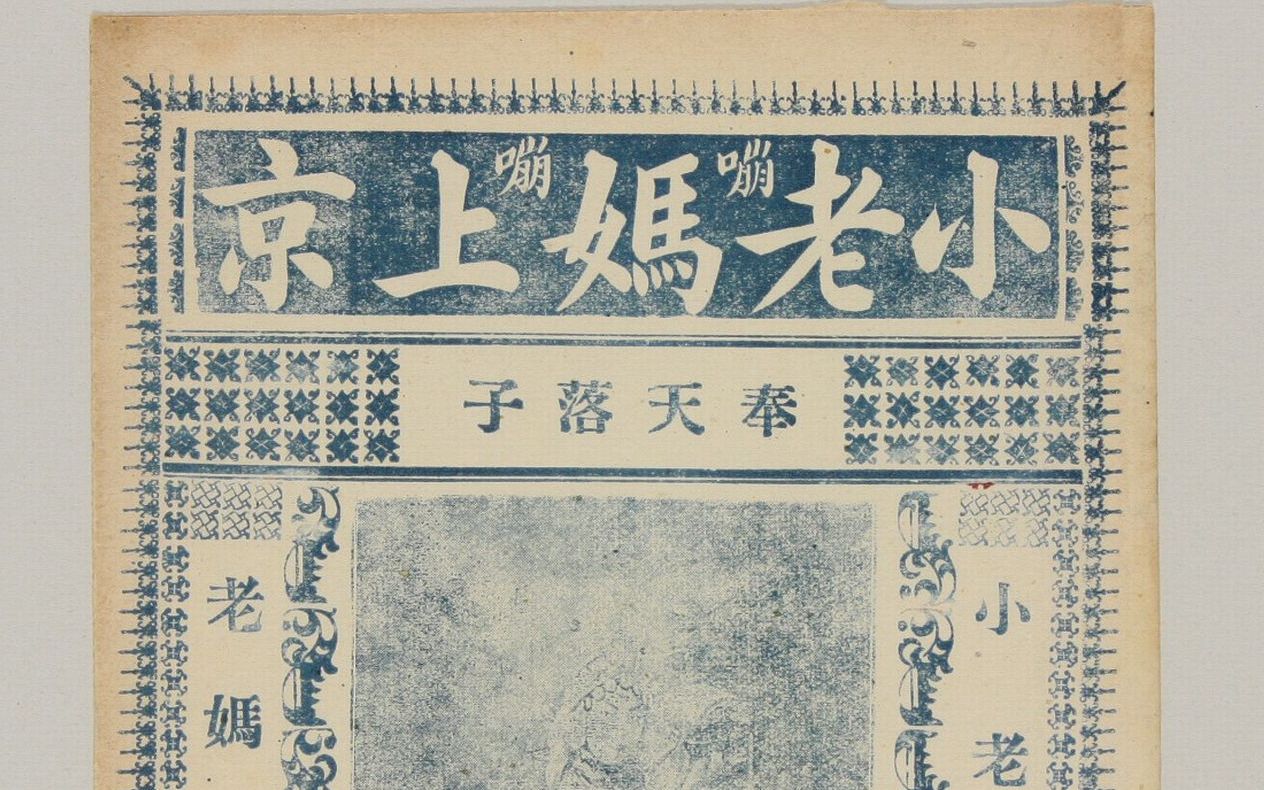 小老嘣媽嘣上京
奉天落子
小老
老媽